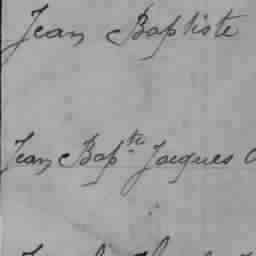 Jean Baptiste
Jean Bapte Jacques